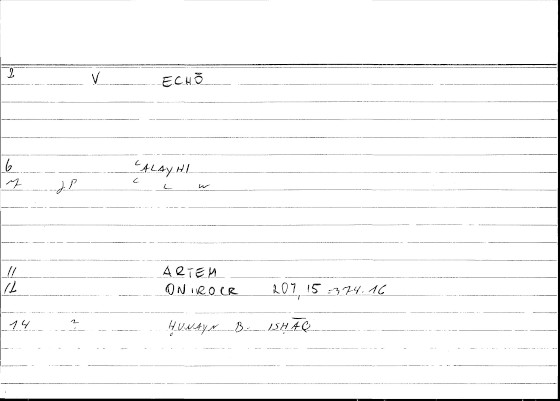 2 V ECHŌ
6 ʿALAYHI
7 JP ʿ L W
11 ARTEM
12 ONIROCR 207,15 = 374.16
14 2 ḤUNAYN B. ISḤĀQ